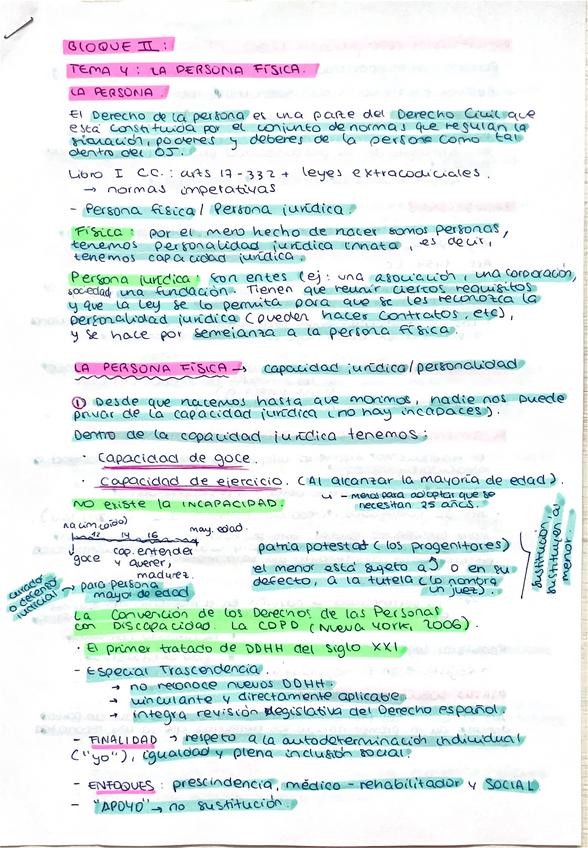 BLOQUE II:
TEMA 4: LA PERSONA FÍSICA.
LA PERSONA.
El Derecho de la persona es una parte del Derecho Civil que
está constituida por el conjunto de normas que regulan la
situación, poderes y deberes de la persona como tal
dentro del OJ.
Libro I C.C.: arts 17-332 + leyes extracodiciales.
→ normas imperativas
- Persona física / Persona jurídica.
Física: por el mero hecho de nacer somos personas,
tenemos personalidad jurídica innata, es decir,
tenemos capacidad jurídica.
Persona jurídica: son entes (ej: una asociación, una corporación,
sociedad, una fundación. Tienen que reunir ciertos requisitos
y que la ley se lo permita para que se les reconozca la
personalidad jurídica (pueden hacer contratos, etc),
y se hace por semejanza a la persona física.
LA PERSONA FÍSICA → capacidad jurídica/personalidad
① Desde que nacemos hasta que morimos, nadie nos puede
privar de la capacidad jurídica (no hay incapaces).
Dentro de la capacidad jurídica tenemos:
· Capacidad de goce.
· Capacidad de ejercicio. (Al alcanzar la mayoría de edad).
↳ - menos para adoptar que se
necesitan 25 años.
NO EXISTE LA INCAPACIDAD.
12 14 16 may. edad.
goce cap. entender
y querer,
madurez.
patria potestad (los progenitores)
el menor está sujeto a ↗ o en su
defecto, a la tutela (lo nombra
un juez).
sustitución (al
sustituyen al
menor.
→ para persona
mayor de edad
La Convención de los Derechos de las Personas
con Discapacidad. La CDPD (Nueva York, 2006).
· El primer tratado de DDHH del siglo XXI.
- Especial Trascendencia.
→ no reconoce nuevos DDHH.
→ vinculante y directamente aplicable
→ integra revisión legislativa del Derecho español.
- FINALIDAD → respeto a la autodeterminación individual
("yo"), igualdad y plena inclusión social.
- ENFOQUES: prescindencia, médico-rehabilitador y SOCIAL
- "APOYO" → no sustitución.